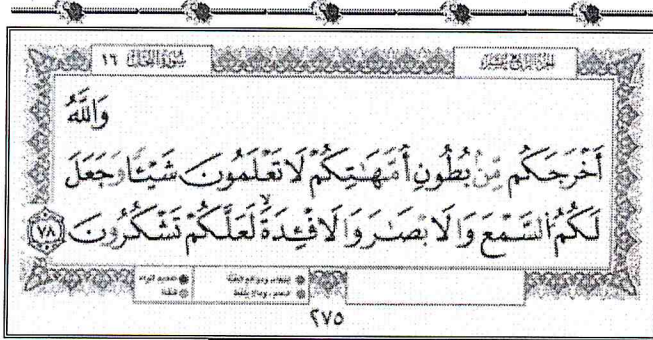 الجزء الرابع عشر
سورة النحل ١٦
وَاللَّهُ
أَخْرَجَكُم مِّنۢ بُطُونِ أُمَّهَٰتِكُمْ لَا تَعْلَمُونَ شَيْـًٔا وَجَعَلَ
لَكُمُ ٱلسَّمْعَ وَٱلْأَبْصَٰرَ وَٱلْأَفْـِٔدَةَ ۙ لَعَلَّكُمْ تَشْكُرُونَ ٧٨
تفخيم الراء
قلقلة
٢٧٥